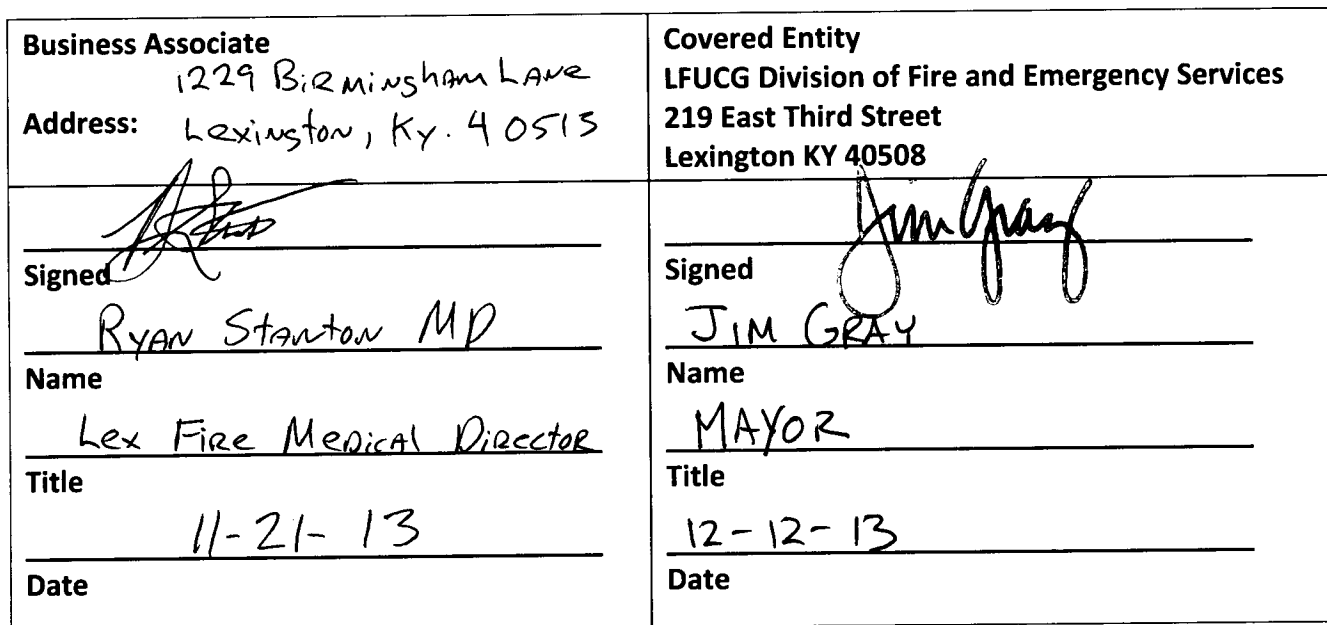 Business Associate
1229 Birmingham Lane
Address: Lexington, Ky. 40513
Signed
Ryan Stanton MD
Name
Lex Fire Medical Director
Title
11-21-13
Date
Covered Entity
LFUCG Division of Fire and Emergency Services
219 East Third Street
Lexington KY 40508
Jim Gray
Signed
JIM GRAY
Name
MAYOR
Title
12-12-13
Date